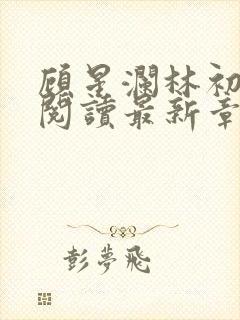 顾星澜林初
閱讀最新章
彭夢飛